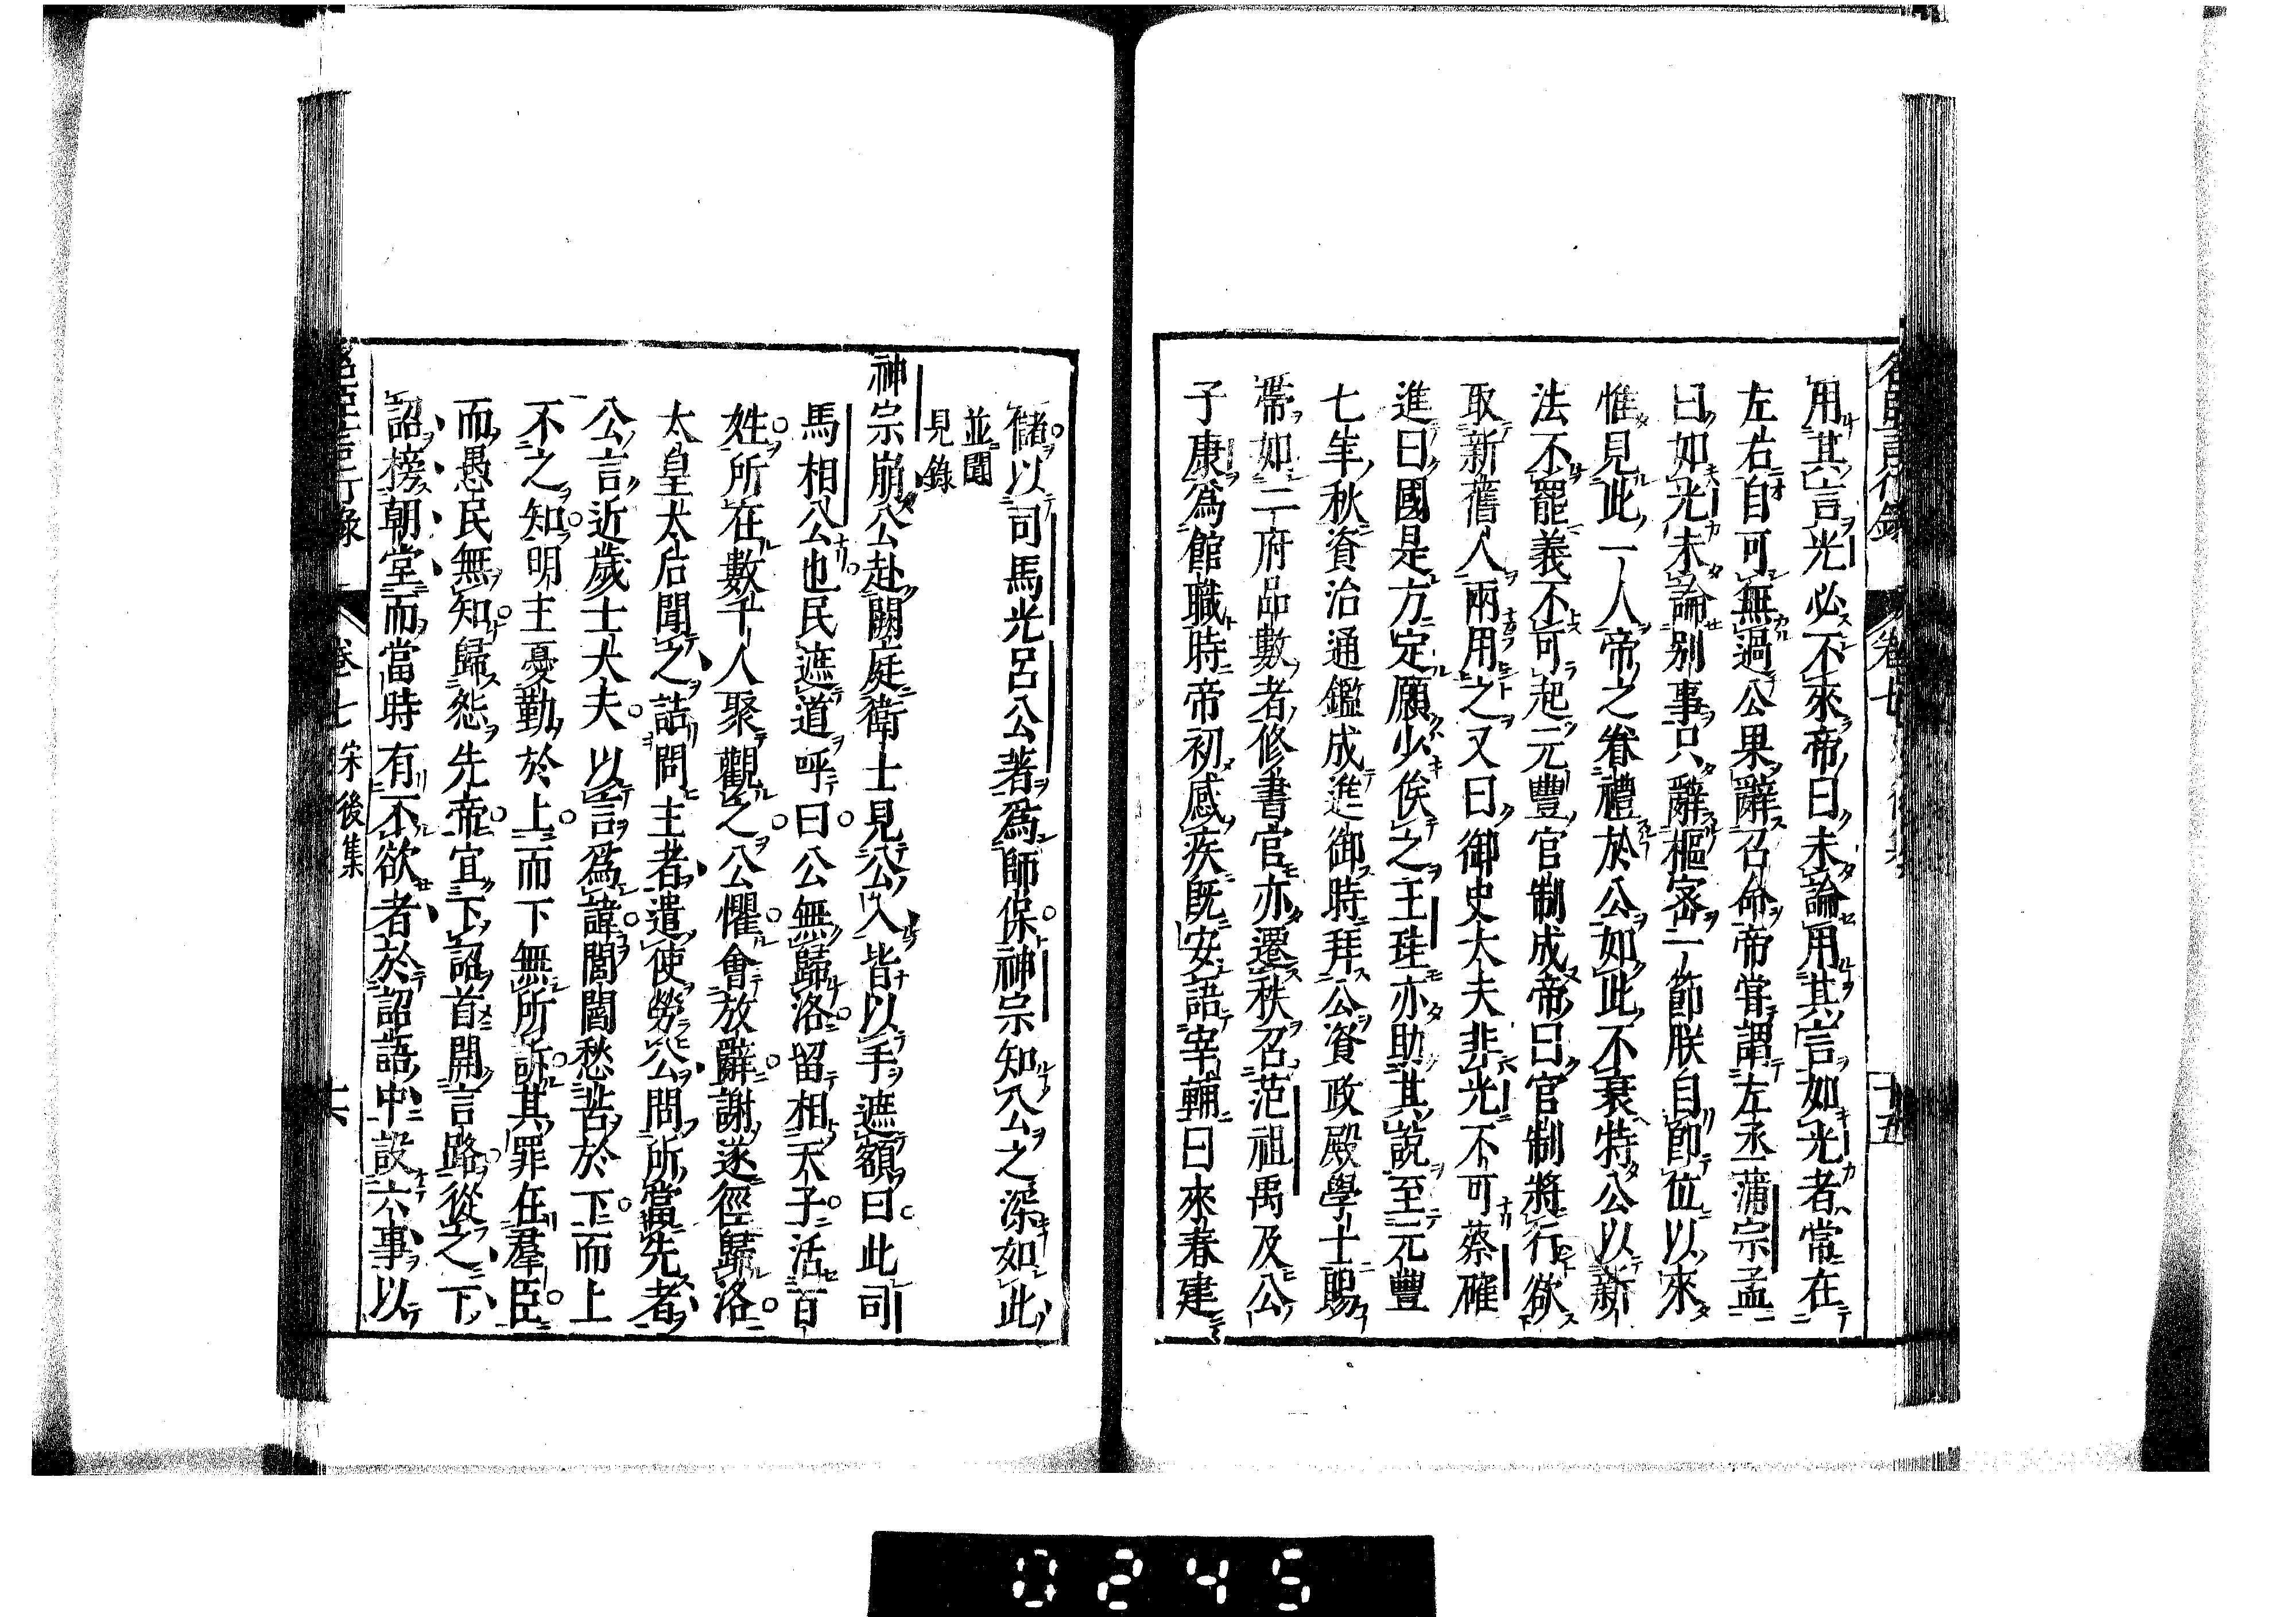 名臣言行錄 卷七 十五
用其言光必不來帝曰未論用其言如光者常在
左右自可無過公果辭召命帝嘗謂左丞蒲宗孟
曰如光未論別事只辭樞密一節朕自卽位以來
惟見此一人帝之眷禮於公如此不衰特公以新
法不罷義不可起元豐官制成帝曰官制將行欲
取新舊人兩用之又曰御史大夫非光不可蔡確
進曰國是方定願少俟之王珪亦助其說至元豐
七年秋資治通鑑成進御時拜公資政殿學士賜
帶如二府品數者修書官亦遷秩召范祖禹及公
子康爲館職時帝初感疾旣安語宰輔曰來春建
儲以司馬光呂公著爲師保神宗知公之深如此
並聞
見錄
神宗崩公赴闕庭衛士見公入皆以手遮額曰此司
馬相公也民遮道呼曰公無歸洛留相天子活百
姓所在數千人聚觀之公懼會放辭謝遂徑歸洛
太皇太后聞之詰問主者遣使勞公問所當先者
公言近歲士大夫以言爲諱閭閻愁苦於下而上
不之知明主憂勤於上而下無所訴其罪在羣臣
而愚民無知歸怨先帝宜下詔首開言路從之下
詔榜朝堂而當時有不欲者於詔語中設六事以
名臣言行錄 卷七 宋後集 十六
0245